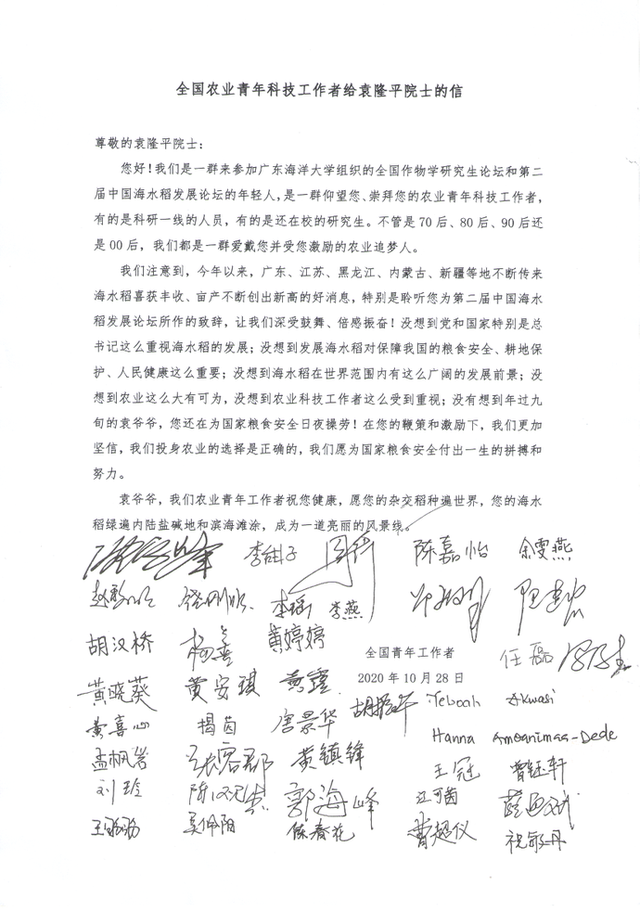 全国农业青年科技工作者给袁隆平院士的信
尊敬的袁隆平院士：
您好！我们是一群来参加广东海洋大学组织的全国作物学研究生论坛和第二
届中国海水稻发展论坛的年轻人，是一群仰望您、崇拜您的农业青年科技工作者，
有的是科研一线的人员，有的是还在校的研究生。不管是 70 后、80 后、90 后还
是 00 后，我们都是一群爱戴您并受您激励的农业追梦人。
我们注意到，今年以来，广东、江苏、黑龙江、内蒙古、新疆等地不断传来
海水稻喜获丰收、亩产不断创出新高的好消息，特别是聆听您为第二届中国海水
稻发展论坛所作的致辞，让我们深受鼓舞、倍感振奋！没想到党和国家特别是总
书记这么重视海水稻的发展；没想到发展海水稻对保障我国的粮食安全、耕地保
护、人民健康这么重要；没想到海水稻在世界范围内有这么广阔的发展前景；没
想到农业这么大有可为，没想到农业科技工作者这么受到重视；没有想到年过九
旬的袁爷爷，您还在为国家粮食安全日夜操劳！在您的鞭策和激励下，我们更加
坚信，我们投身农业的选择是正确的，我们愿为国家粮食安全付出一生的拼搏和
努力。
袁爷爷，我们农业青年工作者祝您健康，愿您的杂交稻种遍世界，您的海水
稻绿遍内陆盐碱地和滨海滩涂，成为一道亮丽的风景线。
李甜子 陈嘉怡 余雯燕
李瑶 李燕
胡汉桥 杨善 黄婷婷
全国青年工作者
任磊
2020 年 10 月 28 日
黄晓葵 黄安琪 Yeboah Akwasi
黄喜心 揭茵 唐景华
Hanna Amoanimaa-Dede
孟帆岩 张容郡 黄镇锋 王冠 曾钰轩
刘玲 郭海峰 江可茵
吴佩阳 陈春花 曹超仪 祝敏丹